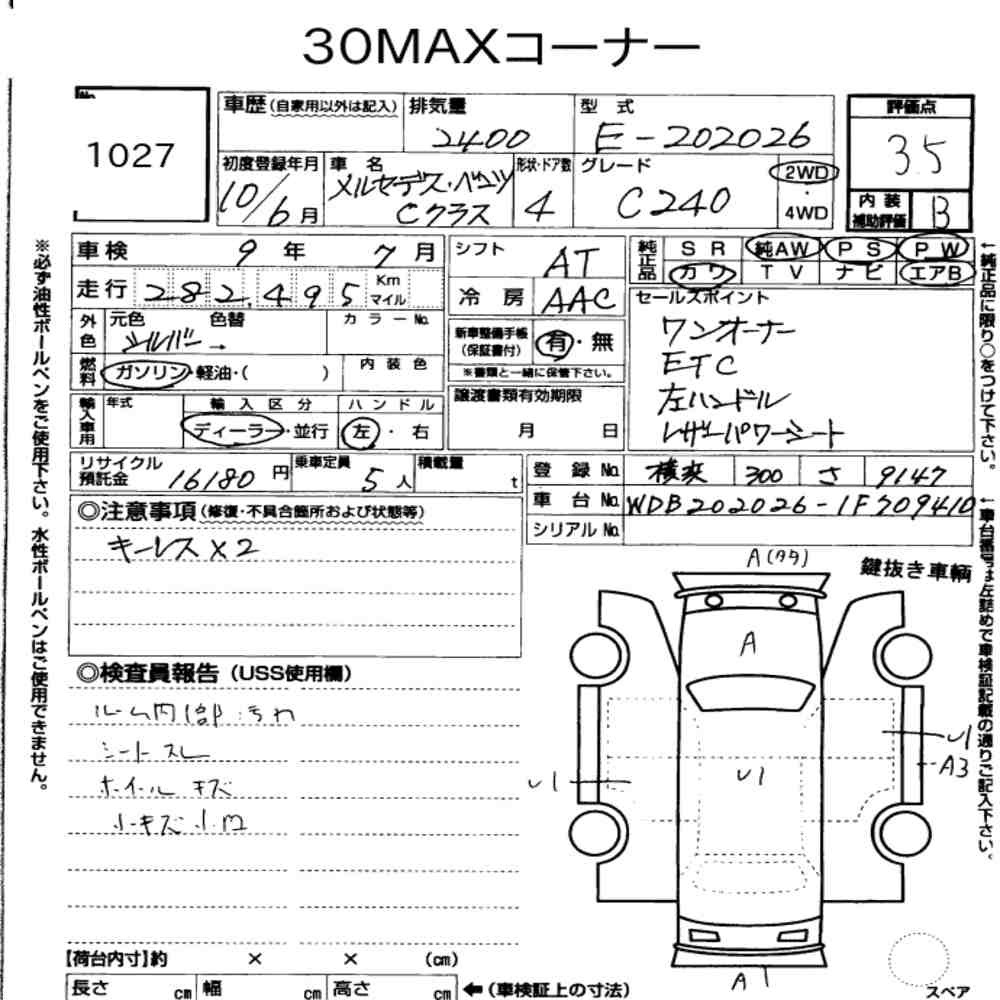 30MAXコーナー
No.
1027
車歴(自家用以外は記入)
排気量
2400
型式
E-202026
評価点
3.5
初度登録年月
10/6月
車名
メルセデス・ベンツ
Cクラス
形状・ドア数
4
グレード
C240
2WD
・
4WD
内装
補助評価
B
車検 9年 7月
シフト AT
純正品 SR 純AW PS PW
カワ TV ナビ エアB
走行 282,495 Km
マイル
冷房 AAC
セールスポイント
ワンオーナー
ETC
左ハンドル
レザーパワーシート
外色 元色 色替 カラーNo.
シルバー →
新車整備手帳
(保証書付)
有・無
※書類と一緒に保管下さい。
燃料 ガソリン・軽油・( )
内装色
譲渡書類有効期限
月 日
輸入車用 年式 輸入区分 ハンドル
ディーラー・並行 左・右
リサイクル
預託金 16180円
乗車定員 5人
積載量 t
登録No. 横浜 300 さ 9147
車台No. WDB202026-1F709410
シリアルNo.
◎注意事項(修復・不具合箇所および状態等)
キーレス×2
◎検査員報告(USS使用欄)
ルーム内部汚れ
シートスレ
ホイールキズ
小キズ小凹
鍵抜き車輌
A(タタ)
A
U1
U1
U1
A3
A1
スペア
【荷台内寸】約 × × (cm)
長さ cm 幅 cm 高さ cm ←(車検証上の寸法)
※必ず油性ボールペンをご使用下さい。水性ボールペンはご使用できません。
←純正品に限り○をつけて下さい。
←車台番号は左詰めで車検証記載の通りご記入下さい。